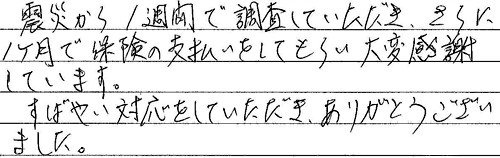 震災から1週間で調査していただき、さらに
1ヶ月で保険の支払いをしてもらい大変感謝
しています。
すばやい対応をしていただき、ありがとうござい
ました。